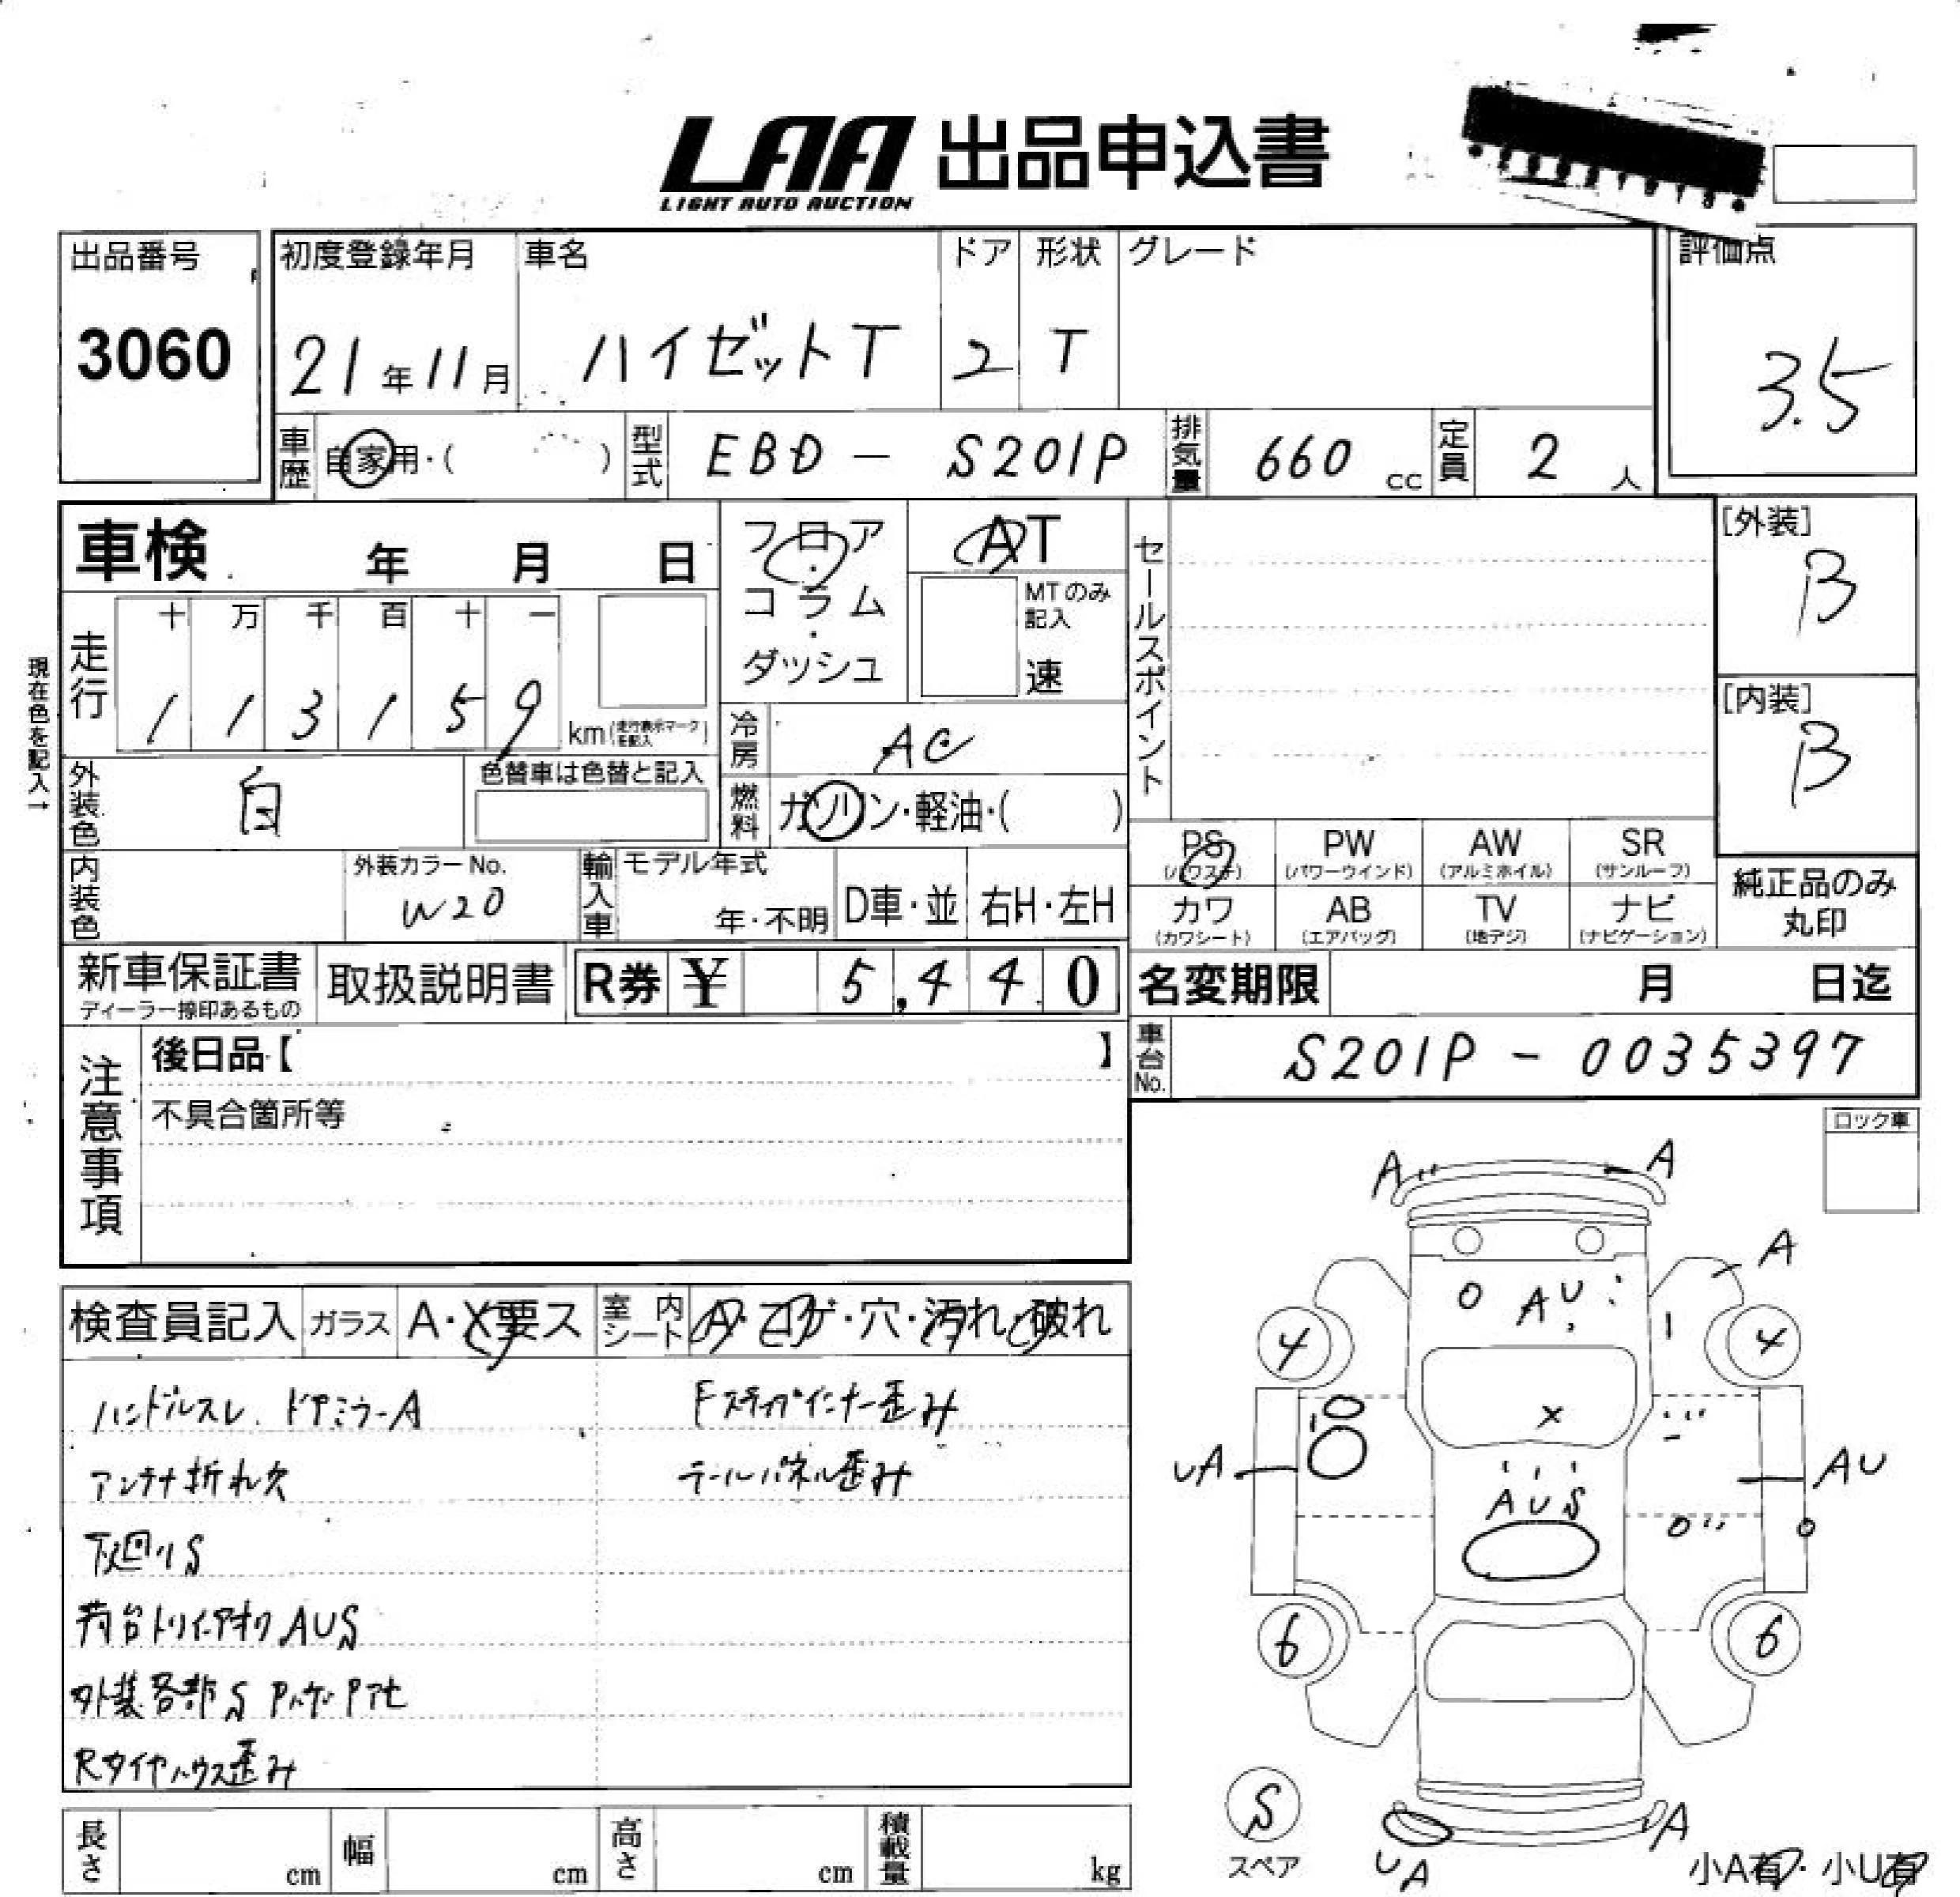 LAA 出品申込書
LIGHT AUTO AUCTION
出品番号
3060
初度登録年月
21年11月
車名
ハイゼットT
ドア
2
形状
T
グレード
評価点
3.5
車歴
自家用・( )
型式
EBD - S201P
排気量
660 cc
定員
2 人
車検 年 月 日
フロア・コラム・ダッシュ
AT
MTのみ記入
速
セールスポイント
[外装]
B
[内装]
B
現在色を記入→
走行
十 万 千 百 十 一
1 1 3 1 5 9
km(走行表示マークを記入)
冷房
AC
外装色
白
色替車は色替と記入
燃料
ガソリン・軽油・( )
内装色
外装カラーNo.
W20
輸入車
モデル年式
年・不明
D車・並
右H・左H
PS
(パワステ)
PW
(パワーウインド)
AW
(アルミホイル)
SR
(サンルーフ)
カワ
(カワシート)
AB
(エアバッグ)
TV
(地デジ)
ナビ
(ナビゲーション)
純正品のみ
丸印
新車保証書
ディーラー捺印あるもの
取扱説明書
R券 ¥ 5,440
名変期限 月 日迄
車台No.
S201P - 0035397
注意事項
後日品【 】
不具合箇所等
ロック車
検査員記入
ガラス
A・X要ス
室内シート
A・コゲ・穴・汚れ・破れ
ハンドルスレ、ドアミラーA
Fステップインナー歪み
アンテナ折れ欠
テールパネル歪み
下廻りS
荷台トリイアオリAUS
外装各部S
Rタイヤハウス歪み
長さ cm
幅 cm
高さ cm
積載量 kg
A A
A
AU
4 4
X
UA AU
AUS
6 6
S
スペア
UA
A
小A有・小U有